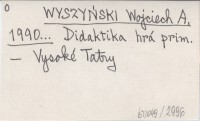 WYSZYŃSKI Wojciech A.
1990... Didaktika hrá prim.
– Vysoké Tatry
/2996